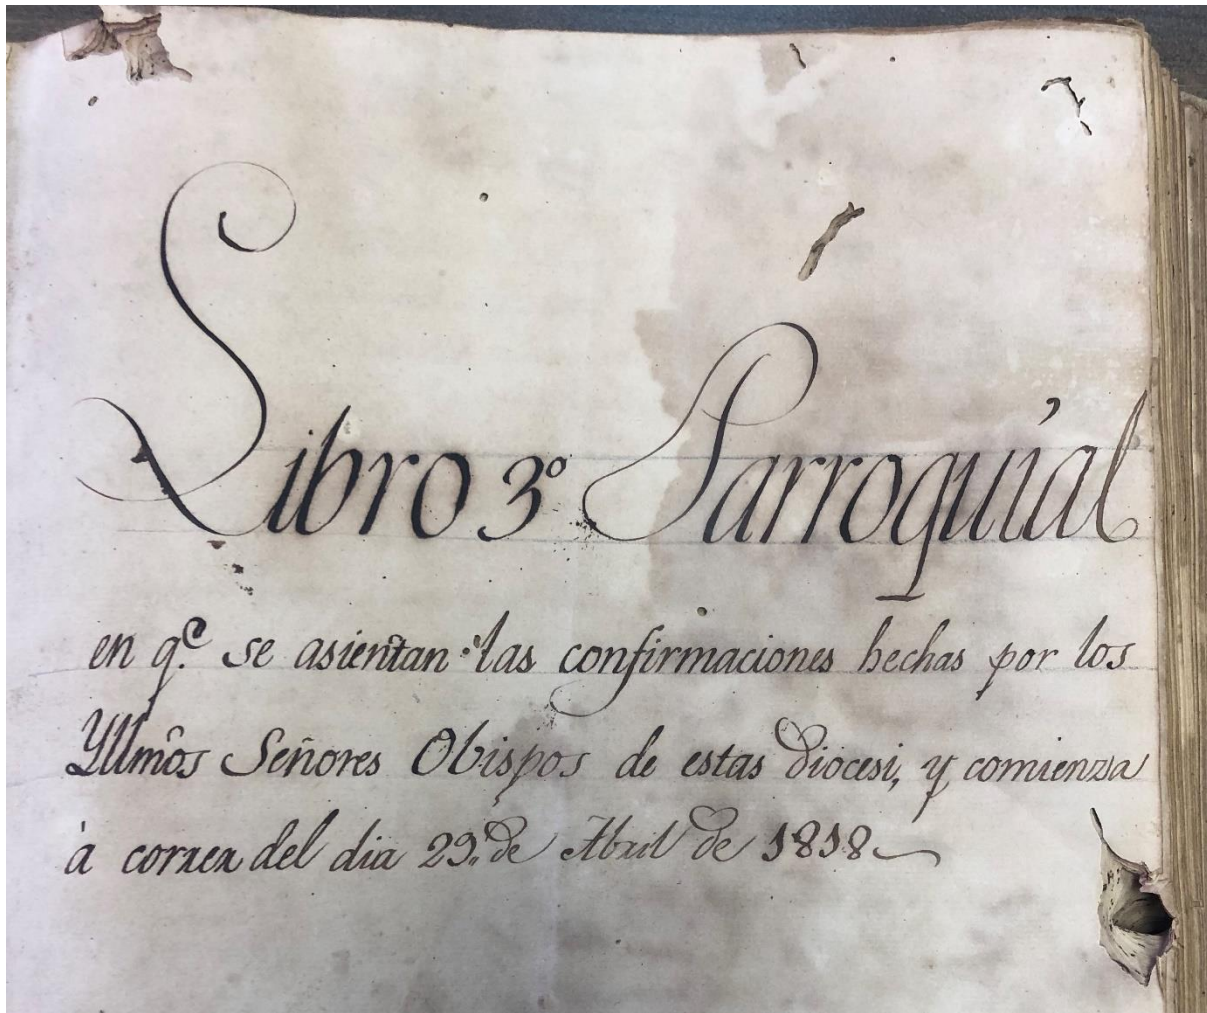 Libro 3º Parroquial
en q.e se asientan las confirmaciones hechas por los
Yllmõs Señores Obispos de estas Diocesi, y comienza
à correr del dia 29. de Abril de 1818